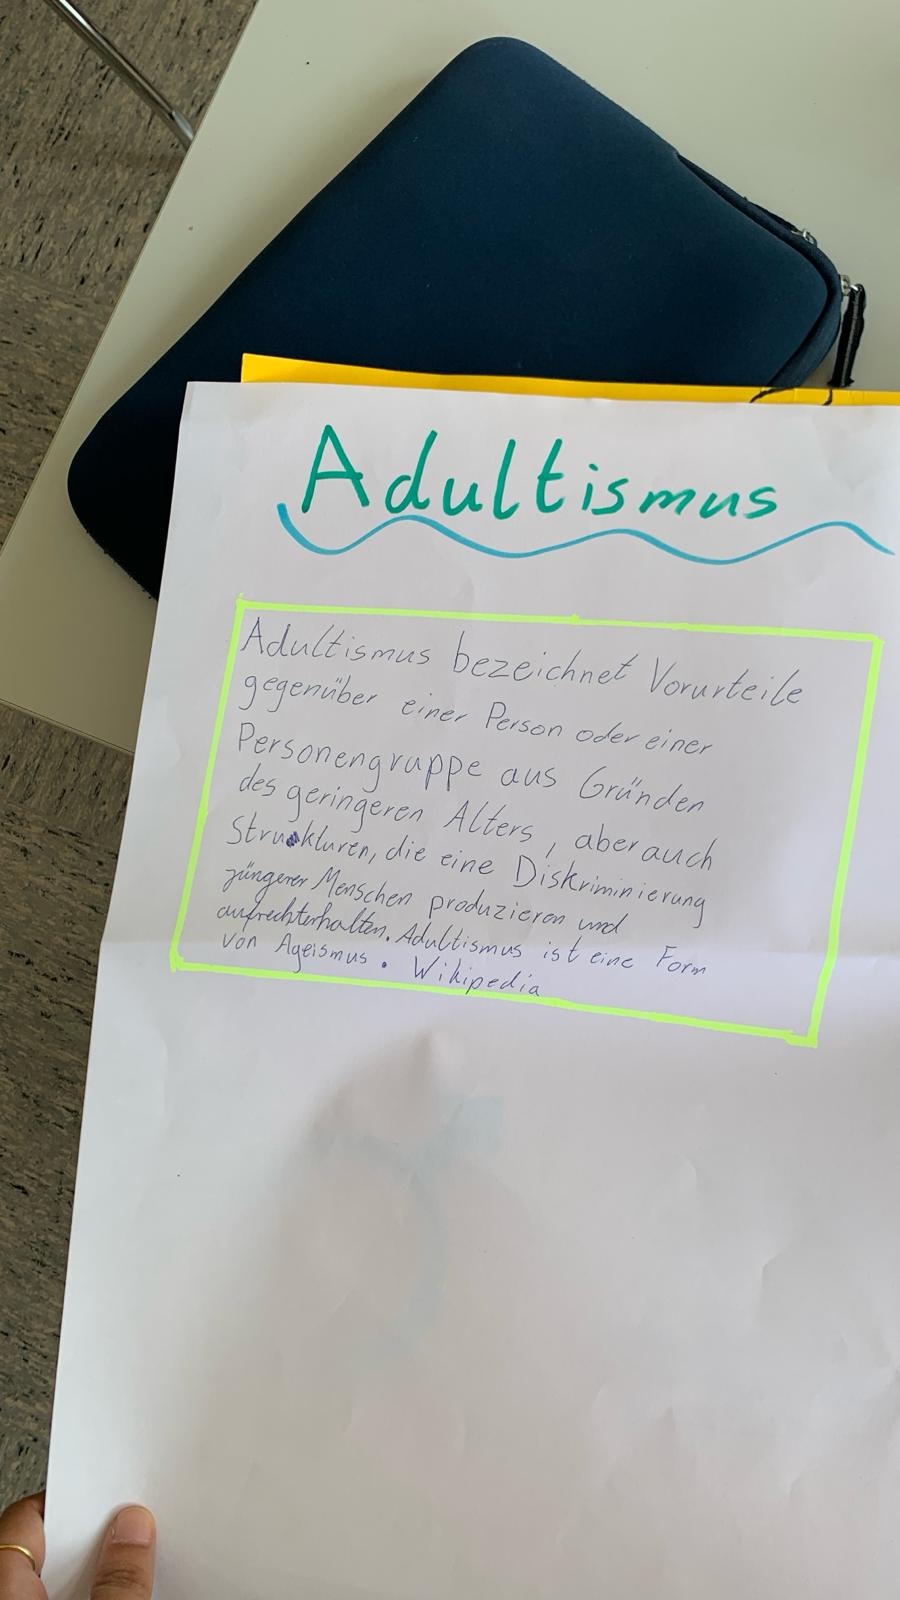 Adultismus
Adultismus bezeichnet Vorurteile
gegenüber einer Person oder einer
Personengruppe aus Gründen
des geringeren Alters, aber auch
Strukturen, die eine Diskriminierung
jüngerer Menschen produzieren und
aufrechterhalten. Adultismus ist eine Form
von Ageismus. Wikipedia